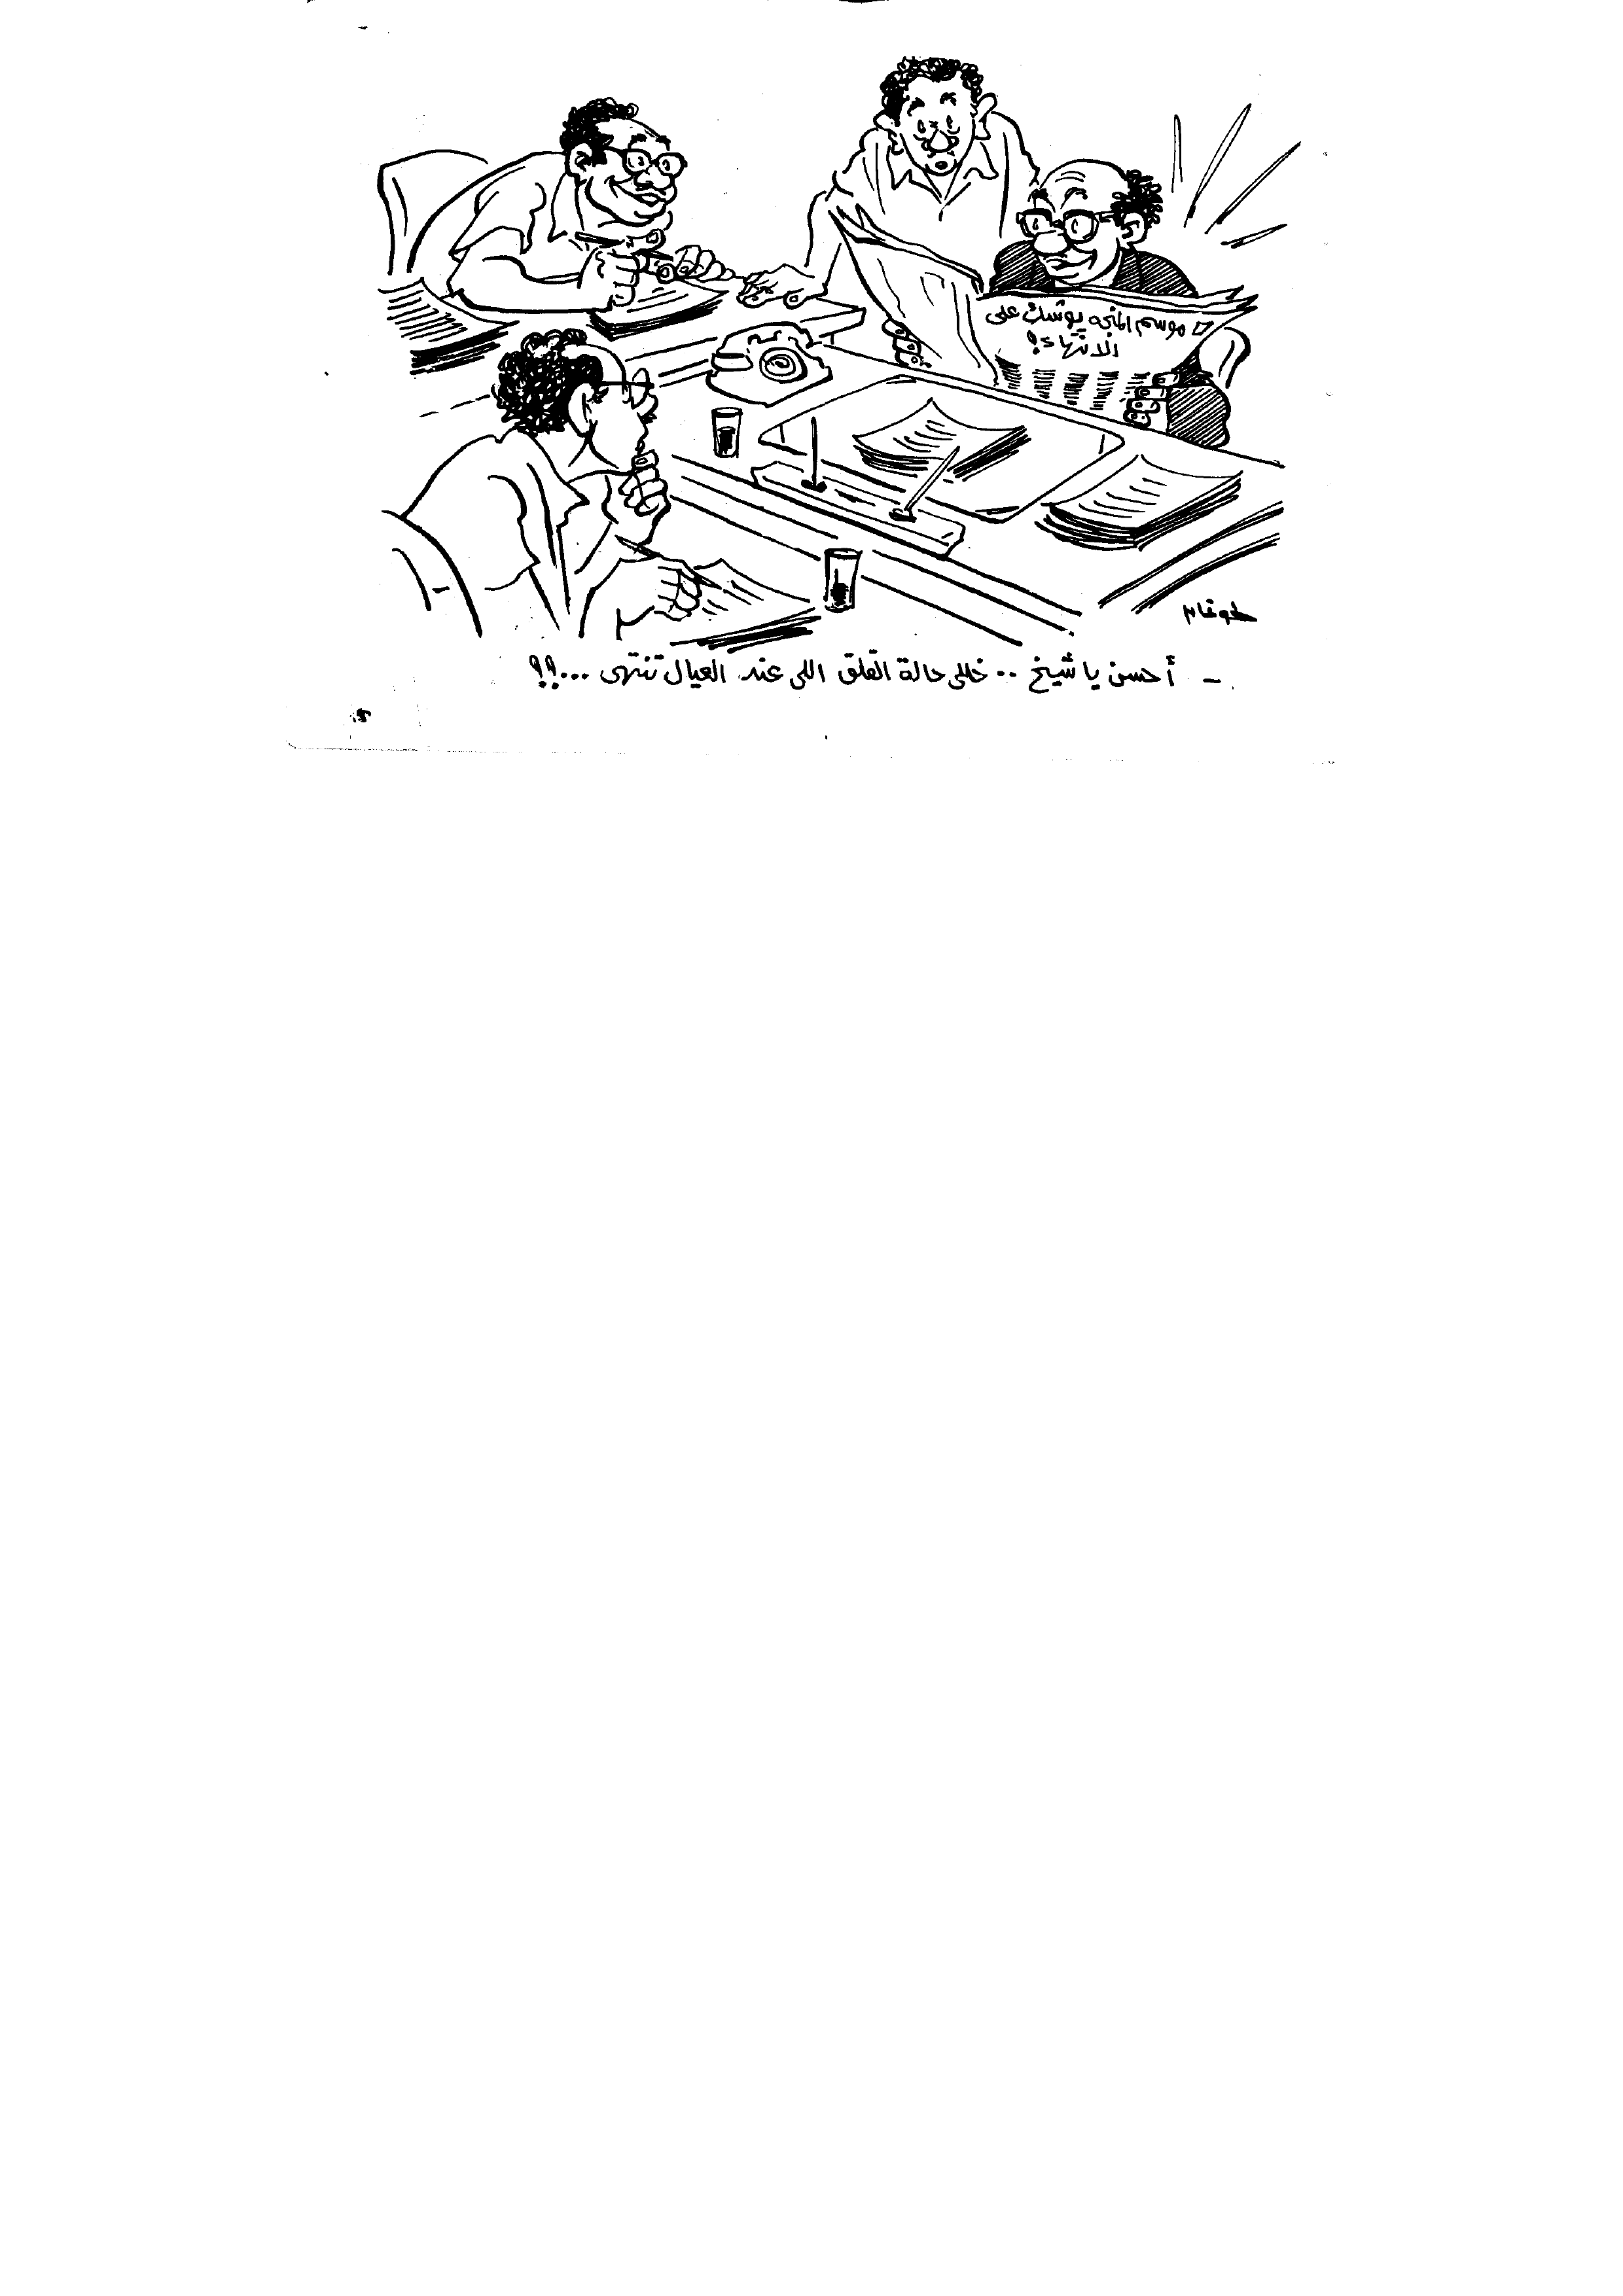 موسم المانجه يوشك على
الانتهاء؟
طوغان
- أحسن يا شيخ .. خللى حالة القلق اللى عند العيال تنتهى ...!!؟